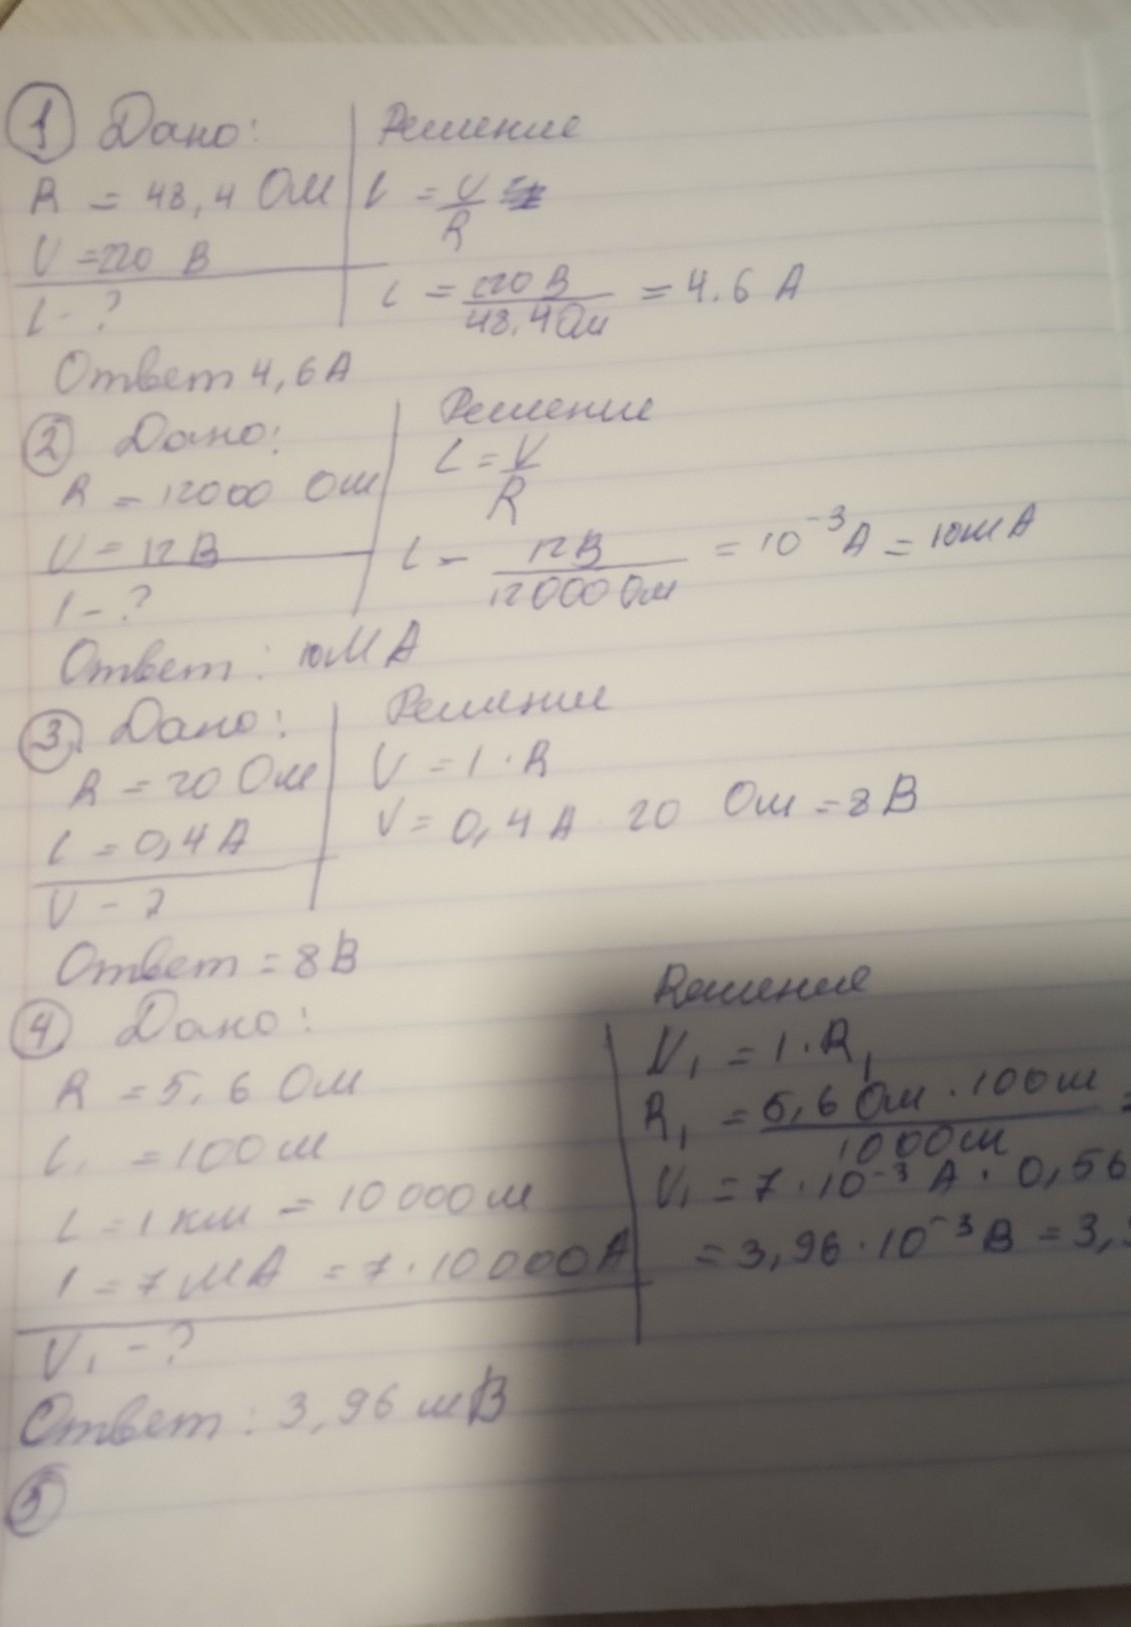 ① Дано:
R = 48,4 Ом
U = 220 В
I - ?
Решение
I = U/R
I = 220 В / 48,4 Ом = 4.6 А
Ответ 4,6 А
② Дано:
R = 12000 Ом
U = 12 В
I - ?
Решение
I = U/R
I = 12 В / 12000 Ом = 10⁻³ А = 10 мА
Ответ: 10 мА
③ Дано:
R = 20 Ом
I = 0,4 А
U - ?
Решение
U = I · R
U = 0,4 А 20 Ом = 8 В
Ответ = 8 В
④ Дано:
R = 5,6 Ом
L₁ = 100 м
L = 1 км = 10 000 м
I = 7 мА = 7 · 10 000 А
U₁ - ?
Решение
U₁ = I · R₁
R₁ = 5,6 Ом · 100 м / 1000 м =
U₁ = 7 · 10⁻³ А · 0,56
= 3,96 · 10⁻³ В = 3,
Ответ: 3,96 мВ
⑤